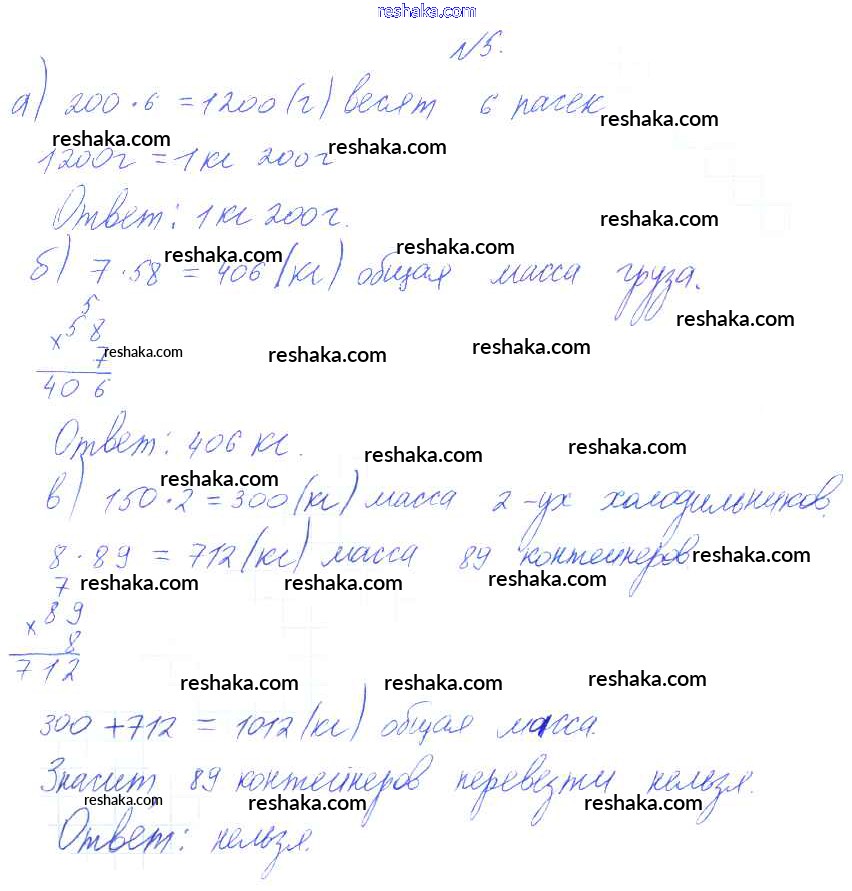 reshaka.com
№5.
а) 200 · 6 = 1200 (г) весят 6 пачек
reshaka.com reshaka.com reshaka.com
1200г = 1 кг 200г
Ответ: 1 кг 200г.
reshaka.com reshaka.com reshaka.com
б) 7 · 58 = 406 (кг) общая масса груза.
5
× 58
7
reshaka.com reshaka.com reshaka.com reshaka.com
406
Ответ: 406 кг.
reshaka.com reshaka.com reshaka.com
в) 150 · 2 = 300 (кг) масса 2-ух холодильников.
8 · 89 = 712 (кг) масса 89 контейнеров
reshaka.com
7
reshaka.com reshaka.com reshaka.com
× 89
8
712
reshaka.com reshaka.com reshaka.com
300 + 712 = 1012 (кг) общая масса.
Значит 89 контейнеров перевезти нельзя.
reshaka.com reshaka.com reshaka.com reshaka.com
Ответ: нельзя.